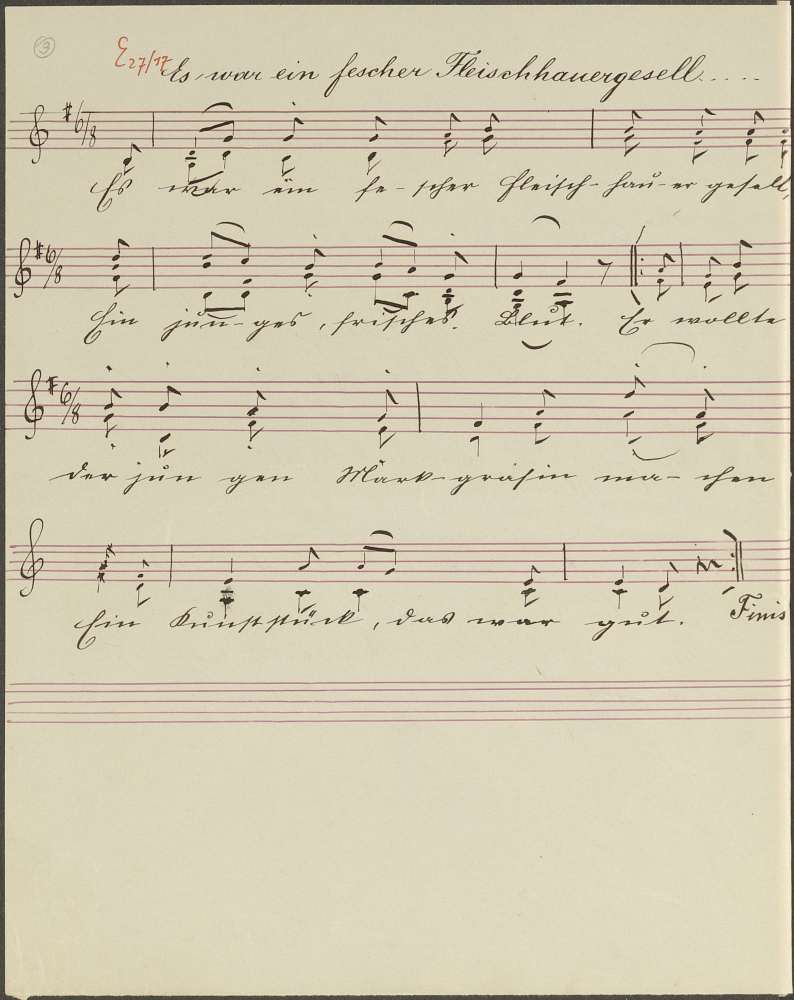 3
E 27/17
Es war ein fescher Fleischhauergesell.....
6/8
Es war ein fe-scher Fleisch-hau-er gesell,
6/8
Ein jun-ges, frisches. Blut. Er wollte
6/8
der jun gen Mark-gräfin ma-chen
Ein Kunststück, das war gut. Finis